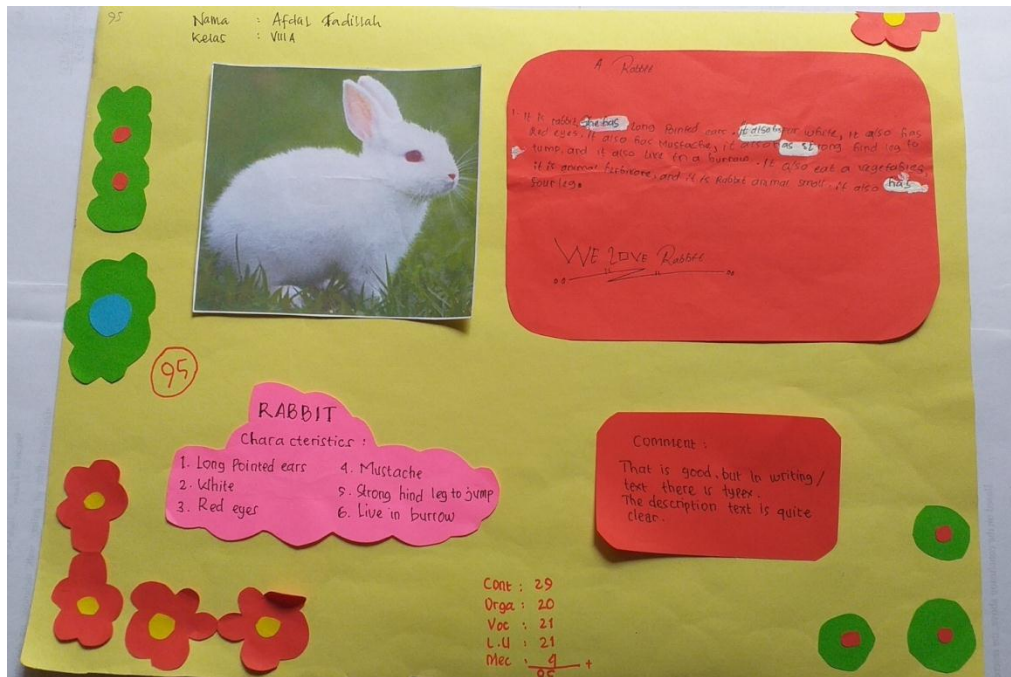 95
Nama : Afdal Fadillah
Kelas : VIII A
A. Rabbit
It is rabbit, she has long pointed ears, it also white, it also has
Red eyes, it also has Mustache, it also has strong hind leg to
Jump, and it also live in a burrow. It also eat a vegetables,
it is animal herbivore, and it is Rabbit animal small, it also has
four leg.
WE LOVE Rabbit
95
RABBIT
Characteristics :
1. Long Pointed ears
2. White
3. Red eyes
4. Mustache
5. Strong hind leg to jump
6. Live in burrow
Comment :
That is good, but in writing /
text there is typex.
The description text is quite
clear.
Cont : 29
Orga : 20
Voc : 21
L.U : 21
Mec : 4 +
95